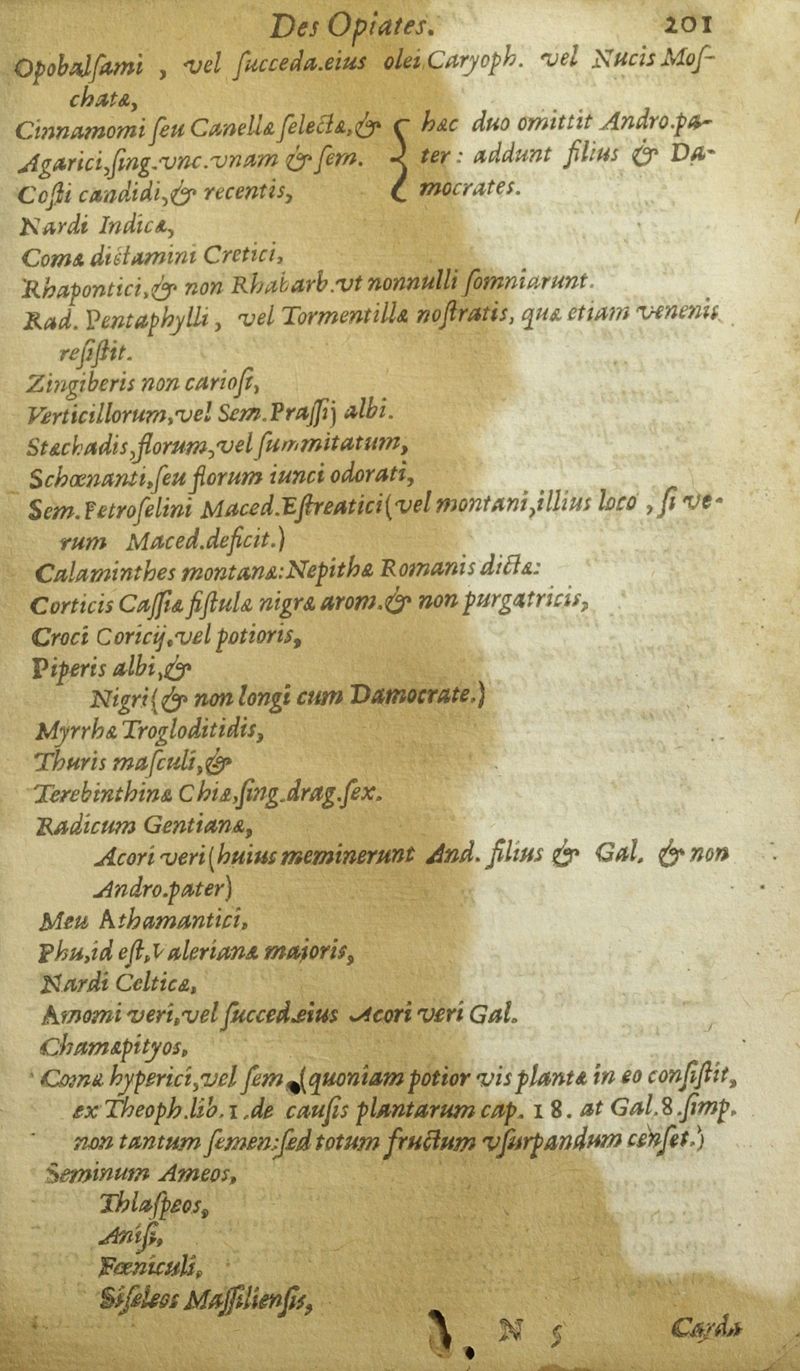 Des Opiates. 201
Opobalſami , vel ſucceda.eius olei Caryoph. vel Nucis Moſ-
chatæ,
Cinnamomi ſeu Canellæ ſelectæ,& { hæc duo omittit Andro.pa-
Agarici,ſing.vnc.vnam & ſem. { ter : addunt filius & Da-
Coſti candidi,& recentis, { mocrates.
Nardi Indicæ,
Comæ dictamini Cretici,
Rhapontici,& non Rhabarb.vt nonnulli ſomniarunt.
Rad. Pentaphylli , vel Tormentillæ noſtratis, quæ etiam venenis
reſiſtit.
Zingiberis non carioſi,
Verticillorum,vel Sem.Praſſij albi.
Stæchadis,florum,vel ſummitatum,
Schœnanti,ſeu florum iunci odorati,
Sem.Petroſelini Maced.Eſtreatici(vel montani,illius loco , ſi ve-
rum Maced.deficit.)
Calaminthes montanæ:Nepithæ Romanis dictæ:
Corticis Caſſiæ fiſtulæ nigræ arom.& non purgatricis,
Croci Coricij,vel potioris,
Piperis albi,&
Nigri(& non longi cum Damocrate.)
Myrrhæ Trogloditidis,
Thuris maſculi,&
Terebinthinæ Chiæ,ſing.drag.ſex.
Radicum Gentianæ,
Acori veri(huius meminerunt And. filius & Gal. & non
Andro.pater)
Meu Athamantici,
Phu,id eſt,Valerianæ maioris,
Nardi Celticæ,
Amomi veri,vel ſucced.eius Acori veri Gal.
Chamæpityos,
Comæ hyperici,vel ſem.(quoniam potior vis plantæ in eo conſiſtit,
ex Theoph.lib.1.de cauſis plantarum cap. 18. at Gal.8.ſimp.
non tantum ſemen:ſed totum fructum vſurpandum cenſet.)
Seminum Ameos,
Thlaſpeos,
Aniſi,
Fœniculi,
Siſeleos Maſſilienſis,
N 5 Carda